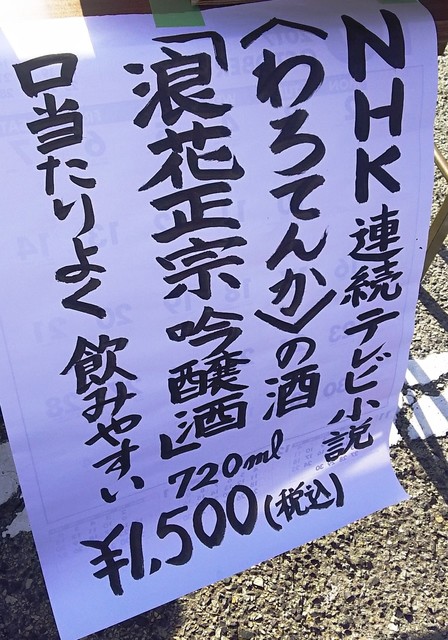 NHK連続テレビ小説
〈わろてんか〉の酒
「浪花正宗吟醸酒」
720ml
¥1,500(税込)
口当たりよく飲みやすい